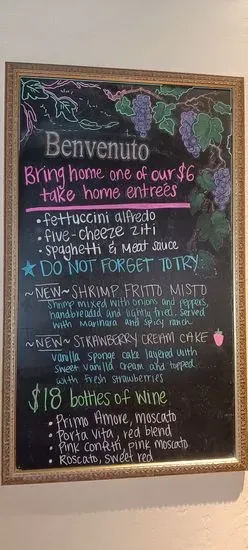 Benvenuto
Bring home one of our $6
take home entrées
• fettuccini alfredo
• five-cheeze ziti
• spaghetti & Meat sauce
★ DO NOT FORGET TO TRY:
~NEW~ SHRIMP FRITTO MISTO
Shrimp mixed with onions and peppers,
handbreaded and lightly fried. Served
with Marinara and spicy ranch
~NEW~ STRAWBERRY CREAM CAKE
vanilla sponge cake layered with
sweet vanilla cream and topped
with fresh strawberries
$18 bottles of wine
• Primo Amore, moscato
• Porta Vita, red blend
• Pink Confetti, pink moscato
• Roscato, sweet red